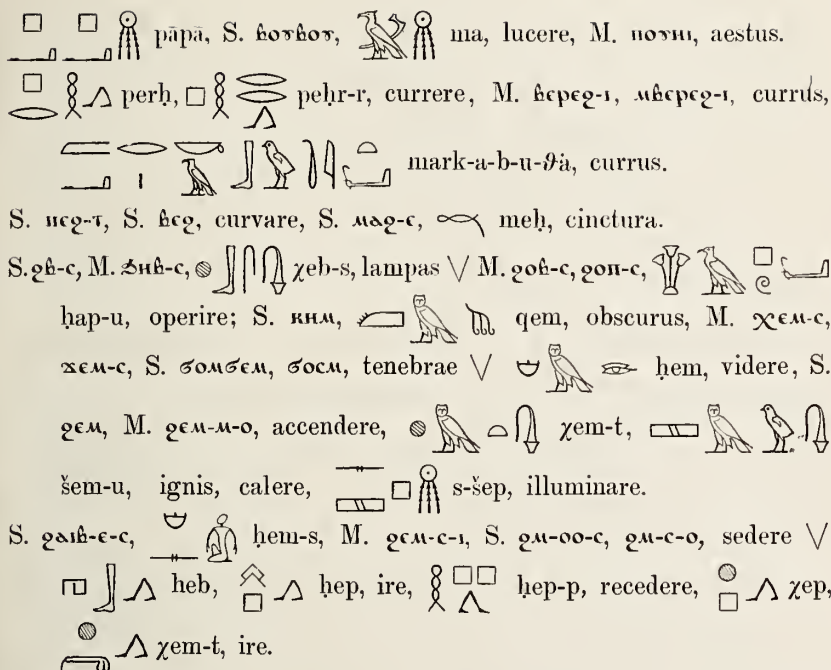 pāpā, S. ⲃⲟⲩⲃⲟⲩ, ma, lucere, M. ⲡⲟⲩⲏⲓ, aestus.
perḥ, peḥr-r, currere, M. ⲃⲉⲣⲉϩ-ⲓ, ⲙⲃⲉⲣⲉϩ-ⲓ, currus,
mark-a-b-u-ϑȧ, currus.
S. ⲡⲉϩ-ⲧ, S. ⲃⲉϩ, curvare, S. ⲙⲁϩ-ⲉ, meḥ, cinctura.
S. ϩⲃ-ⲥ, M. ϧⲏⲃ-ⲥ, χeb-s, lampas V M. ϩⲟⲃ-ⲥ, ϩⲟⲡ-ⲥ,
ḥap-u, operire; S. ⲕⲏⲙ, qem, obscurus, M. ⲭⲉⲙ-ⲥ,
ϫⲉⲙ-ⲥ, S. ϭⲟⲙϭⲉⲙ, ϭⲟⲥⲙ, tenebrae V ḥem, videre, S.
ϩⲉⲙ, M. ϩⲉⲙ-ⲙ-ⲟ, accendere, χem-t,
šem-u, ignis, calere, s-šep, illuminare.
S. ϩⲁⲓⲃ-ⲉ-ⲥ, ḥem-s, M. ϩⲉⲙ-ⲥ-ⲓ, S. ϩⲙ-ⲟⲟ-ⲥ, ϩⲙ-ⲥ-ⲟ, sedere V
heb, ḥep, ire, ḥep-p, recedere, χep,
χem-t, ire.